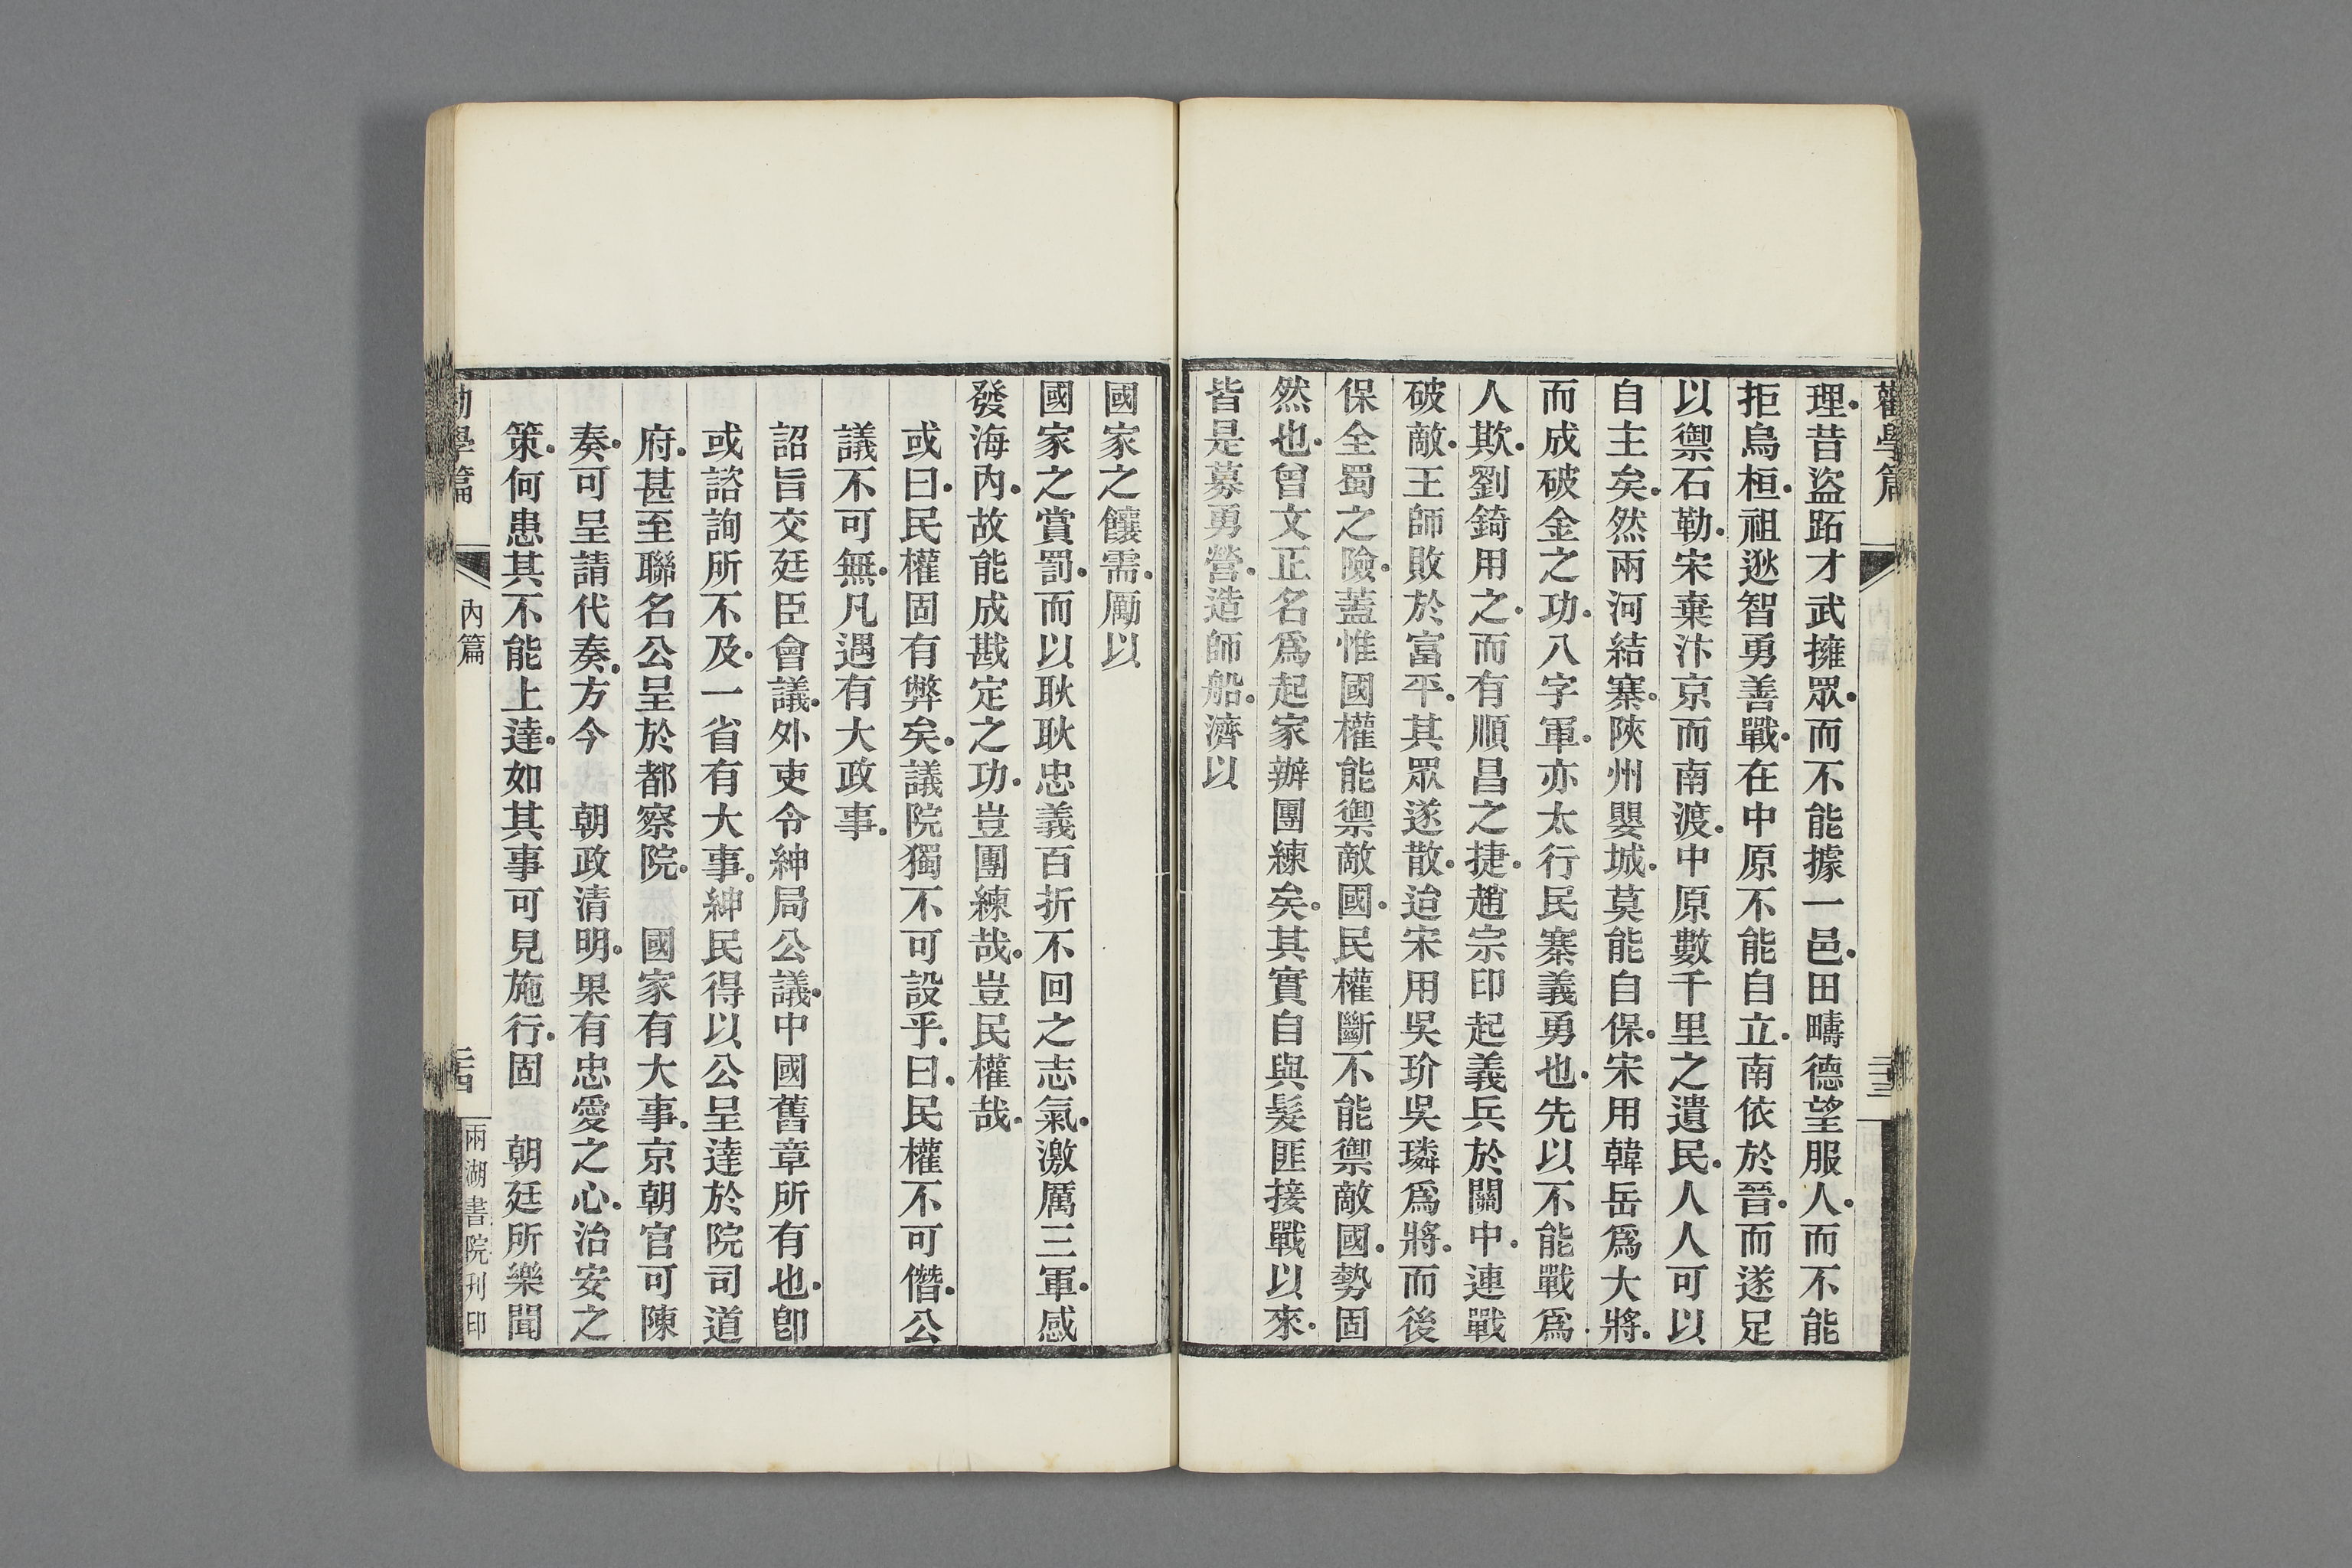 勸學篇
二十三
理。昔盜跖才武擁眾。而不能據一邑。田疇德望服人。而不能
拒烏桓。祖逖智勇善戰。在中原不能自立。南依於晉。而遂足
以禦石勒。宋棄汴京而南渡。中原數千里之遺民。人人可以
自主矣。然兩河結寨。陝州嬰城。莫能自保。宋用韓岳爲大將。
而成破金之功。八字軍。亦太行民寨義勇也。先以不能戰爲
人欺。劉錡用之。而有順昌之捷。趙宗印起義兵於關中。連戰
破敵。王師敗於富平。其眾遂散。迨宋用吳玠吳璘爲將。而後
保全蜀之險。蓋惟國權能禦敵國。民權斷不能禦敵國。勢固
然也。曾文正名爲起家辦團練矣。其實自與髮匪接戰以來。
皆是募勇營。造師船。濟以
國家之饟需。厲以
國家之賞罰。而以耿耿忠義百折不回之志氣。激厲三軍。感
發海內。故能成戡定之功。豈團練哉。豈民權哉。
或曰。民權固有弊矣。議院獨不可設乎。曰。民權不可僭。公
議不可無。凡遇有大政事。
詔旨交廷臣會議。外吏令紳局公議。中國舊章所有也。卽
或諮詢所不及。一省有大事。紳民得以公呈達於院司道
府。甚至聯名公呈於都察院。國家有大事。京朝官可陳
奏。可呈請代奏。方今　朝政清明。果有忠愛之心。治安之
策。何患其不能上達。如其事可見施行。固　朝廷所樂聞
勸學篇
內篇
二十四
兩湖書院刊印